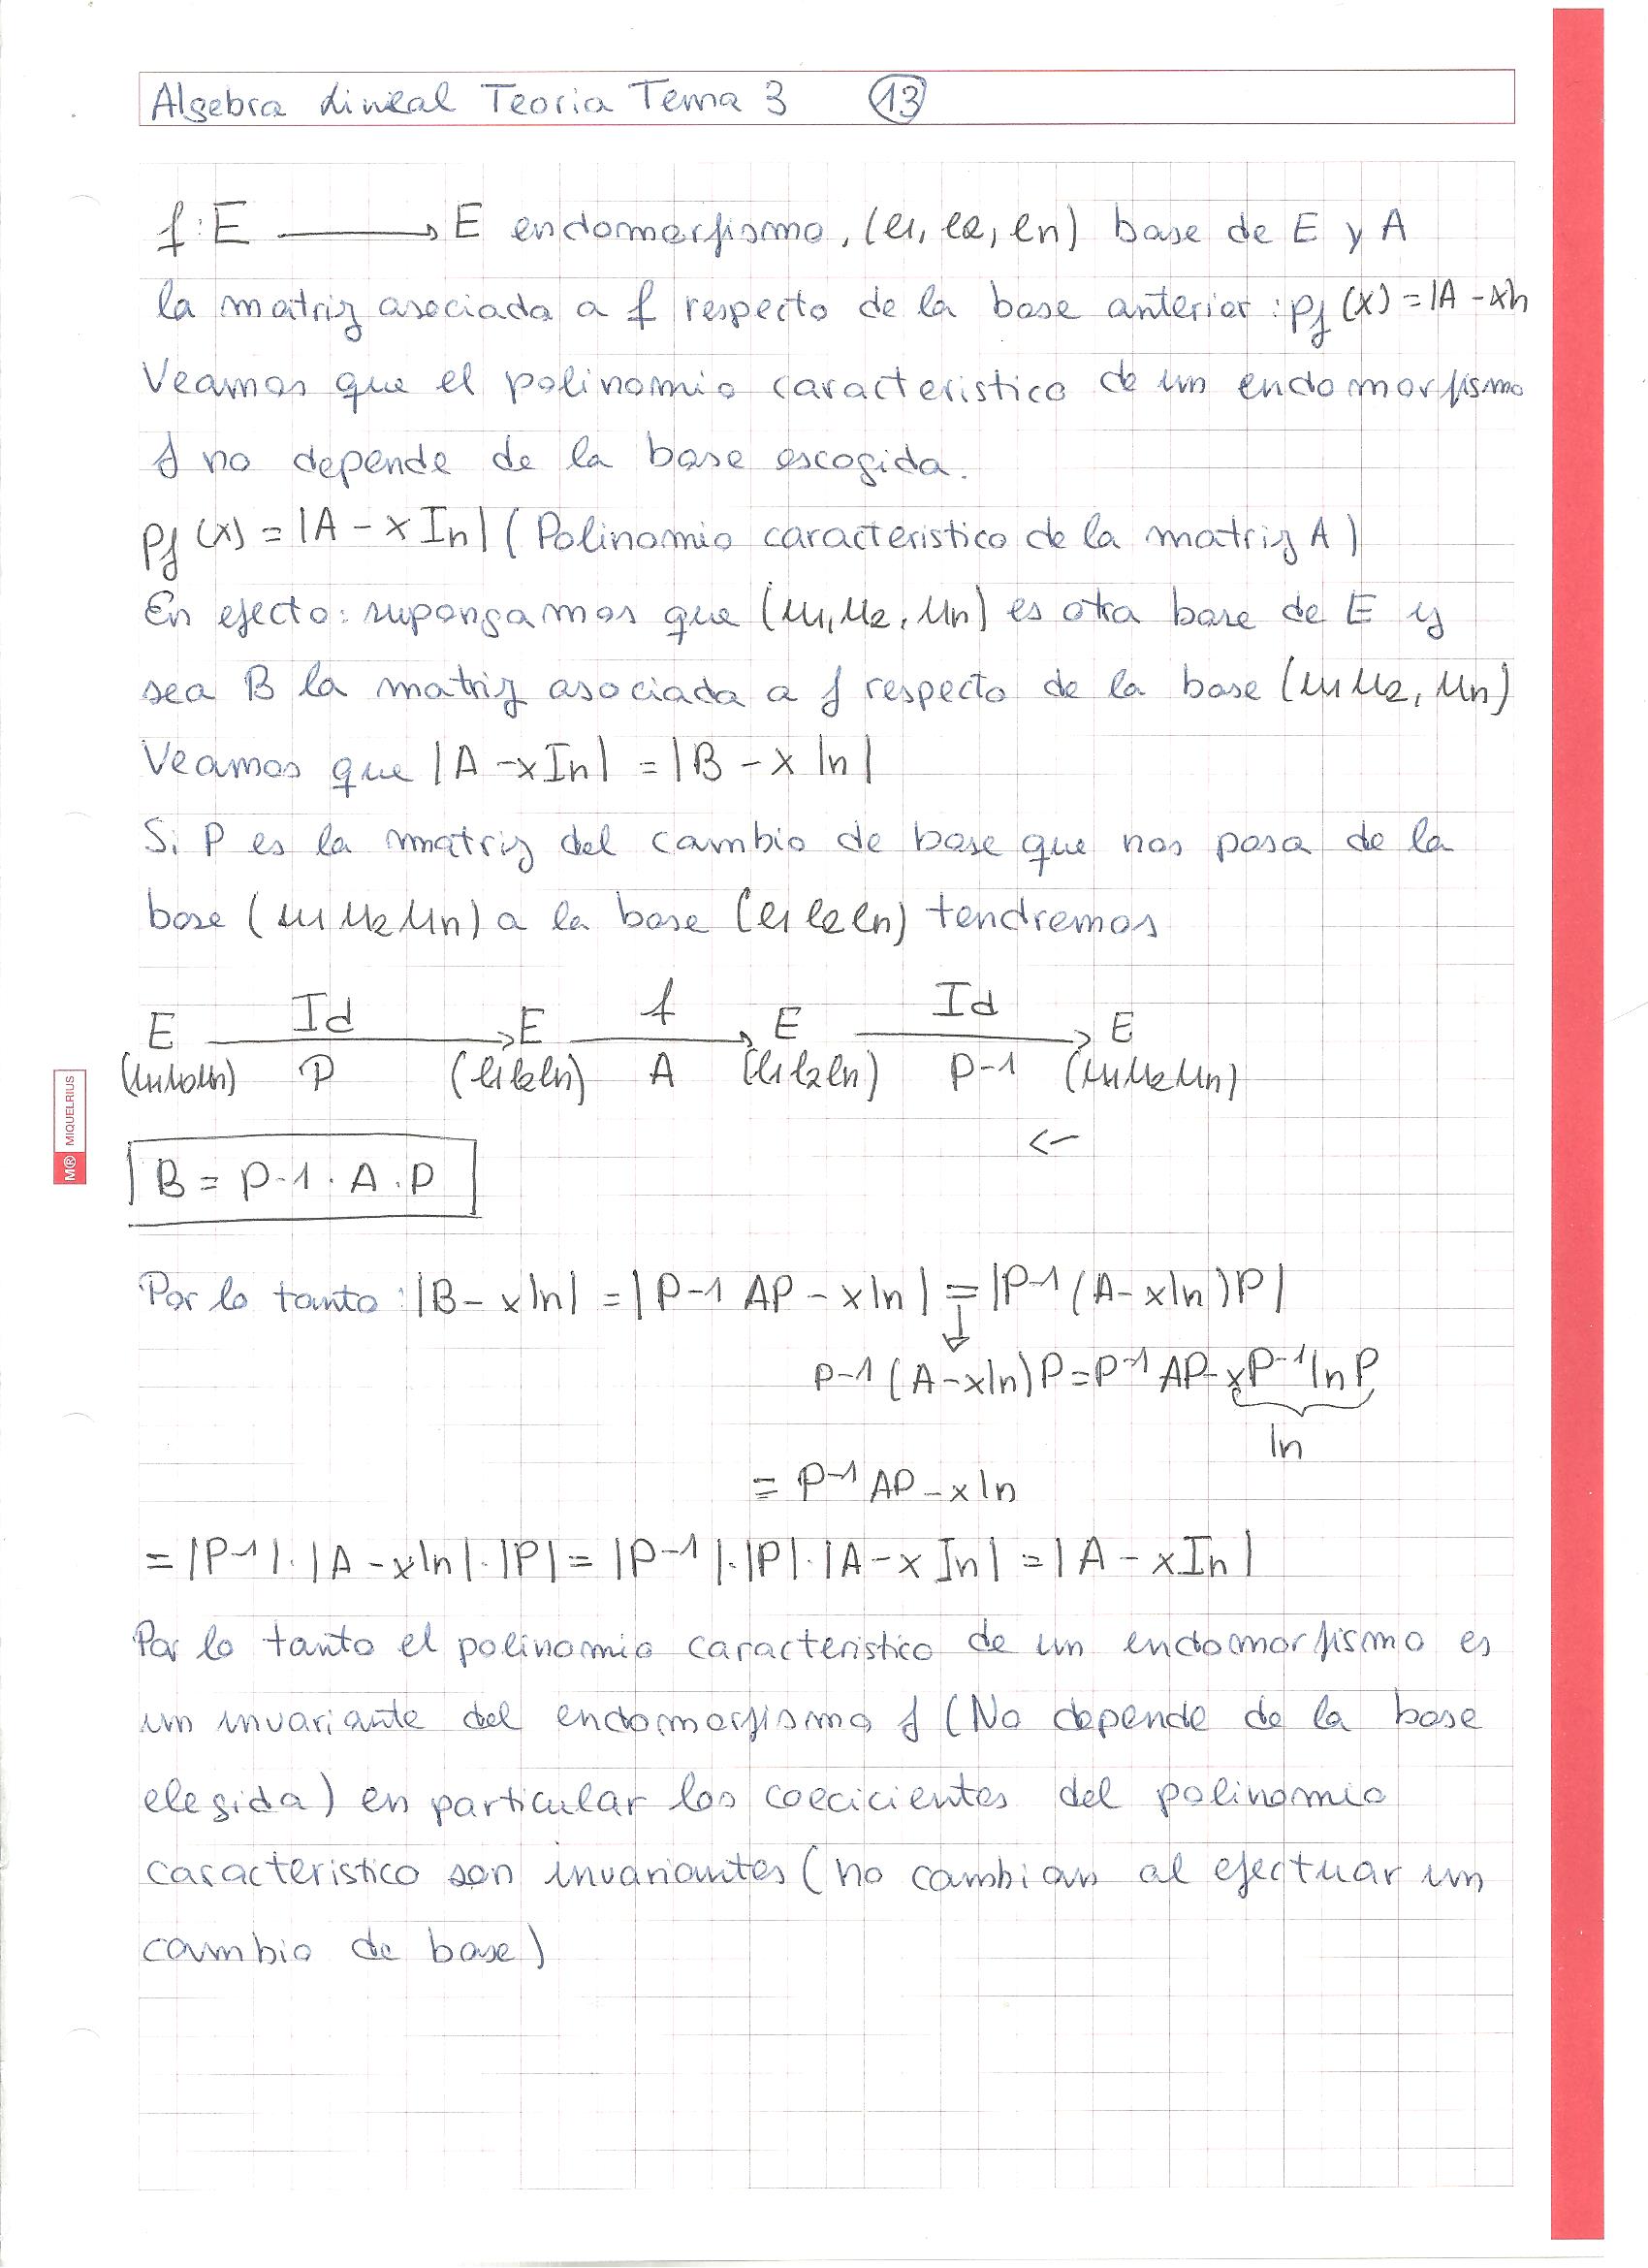 Algebra Lineal Teoria Tema 3 13
f: E → E endomorfismo, (e1, e2, en) base de E y A
la matriz asociada a f respecto de la base anterior: pf (x) = |A - xIn
Veamos que el polinomio caracteristico de un endomorfismo
f no depende de la base escogida.
pf (x) = |A - x In| (Polinomio caracteristico de la matriz A)
En efecto: supongamos que (u1, u2, un) es otra base de E y
sea B la matriz asociada a f respecto de la base (u1 u2, un)
Veamos que |A - x In| = |B - x In|
Si P es la matriz del cambio de base que nos pasa de la
base (u1 u2 un) a la base (e1 e2 en) tendremos
Id f Id
E → E → E → E
(u1 u2 un) P (e1 e2 en) A (e1 e2 en) P-1 (u1 u2 un)
←
B = P-1 . A . P
M® MIQUELRIUS
Por lo tanto: |B - x In| = |P-1 AP - x In| = |P-1 (A - x In) P|
↓
P-1 (A - x In) P = P-1 AP - x P-1 In P
In
= P-1 AP - x In
= |P-1| . |A - x In| . |P| = |P-1| . |P| . |A - x In| = |A - x In|
Por lo tanto el polinomio caracteristico de un endomorfismo es
un invariante del endomorfismo f (No depende de la base
elegida) en particular los coecicientes del polinomio
caracteristico son invariantes (no cambian al efectuar un
cambio de base)